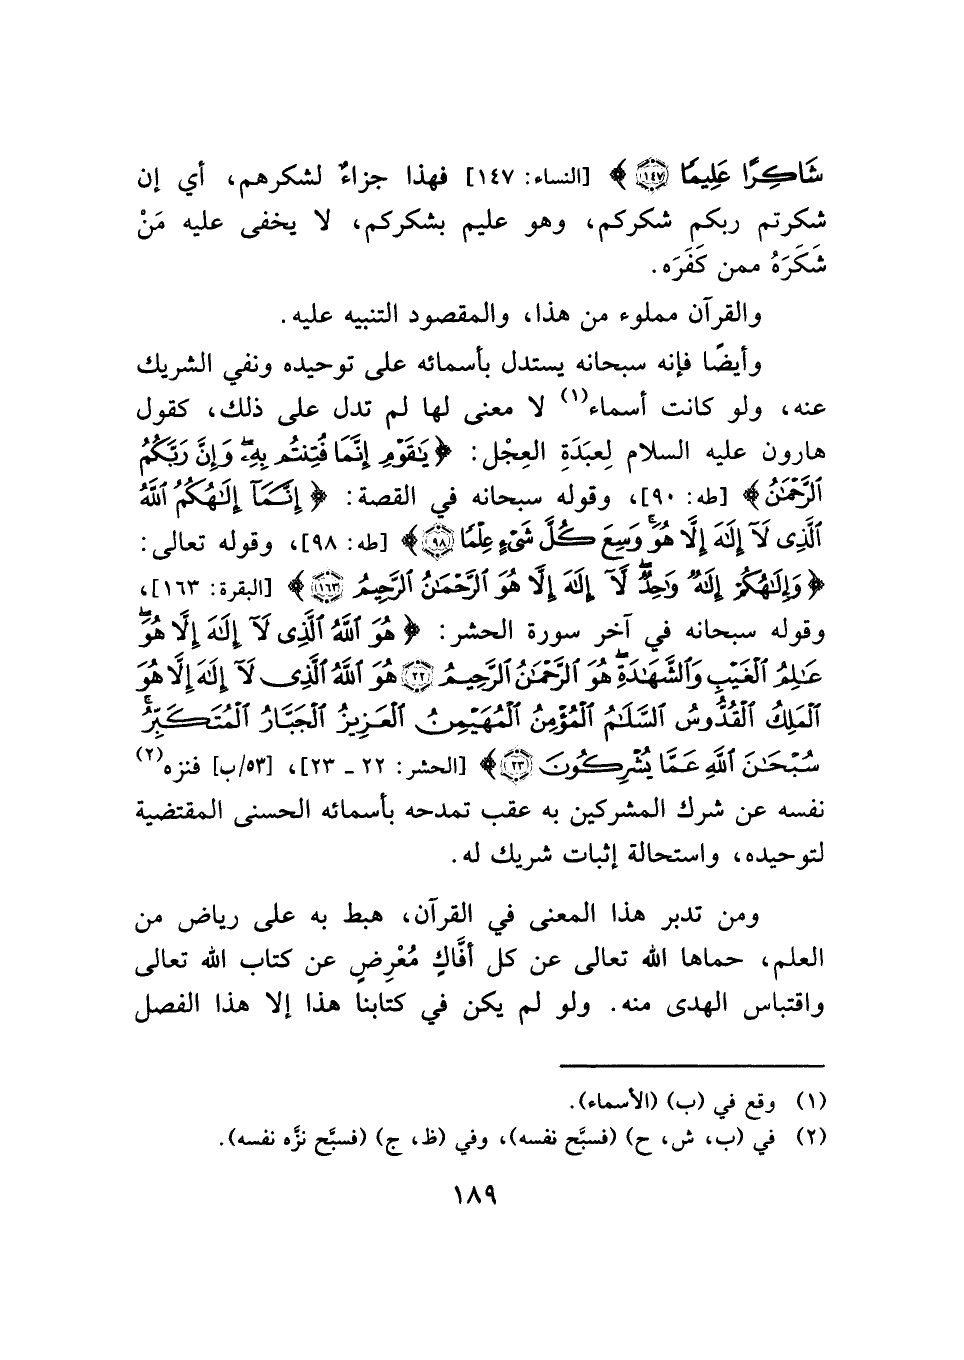 شَاكِرًا عَلِيمًا ﴿١٤٧﴾ ﴾ [النساء: ١٤٧] فهذا جزاءٌ لشكرهم، أي إن
شكرتم ربكم شكركم، وهو عليم بشكركم، لا يخفى عليه مَنْ
شَكَرَهُ ممن كَفَرَه.
والقرآن مملوء من هذا، والمقصود التنبيه عليه.
وأيضًا فإنه سبحانه يستدل بأسمائه على توحيده ونفي الشريك
عنه، ولو كانت أسماء(١) لا معنى لها لم تدل على ذلك، كقول
هارون عليه السلام لِعبَدَةِ العِجْل: ﴿ يَٰقَوْمِ إِنَّمَا فُتِنتُم بِهِۦۖ وَإِنَّ رَبَّكُمُ
ٱلرَّحْمَٰنُ ﴾ [طه: ٩٠]، وقوله سبحانه في القصة: ﴿ إِنَّمَآ إِلَٰهُكُمُ ٱللَّهُ
ٱلَّذِى لَآ إِلَٰهَ إِلَّا هُوَۚ وَسِعَ كُلَّ شَىْءٍ عِلْمًا ﴿٩٨﴾ ﴾ [طه: ٩٨]، وقوله تعالى:
﴿ وَإِلَٰهُكُمْ إِلَٰهٌ وَٰحِدٌۖ لَّآ إِلَٰهَ إِلَّا هُوَ ٱلرَّحْمَٰنُ ٱلرَّحِيمُ ﴿١٦٣﴾ ﴾ [البقرة: ١٦٣]،
وقوله سبحانه في آخر سورة الحشر: ﴿ هُوَ ٱللَّهُ ٱلَّذِى لَآ إِلَٰهَ إِلَّا هُوَۖ
عَٰلِمُ ٱلْغَيْبِ وَٱلشَّهَٰدَةِۖ هُوَ ٱلرَّحْمَٰنُ ٱلرَّحِيمُ ﴿٢٢﴾ هُوَ ٱللَّهُ ٱلَّذِى لَآ إِلَٰهَ إِلَّا هُوَ
ٱلْمَلِكُ ٱلْقُدُّوسُ ٱلسَّلَٰمُ ٱلْمُؤْمِنُ ٱلْمُهَيْمِنُ ٱلْعَزِيزُ ٱلْجَبَّارُ ٱلْمُتَكَبِّرُۚ
سُبْحَٰنَ ٱللَّهِ عَمَّا يُشْرِكُونَ ﴿٢٣﴾ ﴾ [الحشر: ٢٢ ـ ٢٣]، [٥٣/ب] فنزه(٢)
نفسه عن شرك المشركين به عقب تمدحه بأسمائه الحسنى المقتضية
لتوحيده، واستحالة إثبات شريك له.
ومن تدبر هذا المعنى في القرآن، هبط به على رياض من
العلم، حماها الله تعالى عن كل أفَّاكٍ مُعْرِضٍ عن كتاب الله تعالى
واقتباس الهدى منه. ولو لم يكن في كتابنا هذا إلا هذا الفصل
(١) وقع في (ب) (الأسماء).
(٢) في (ب، ش، ح) (فسبَّح نفسه)، وفي (ظ، ج) (فسبَّح نزَّه نفسه).
١٨٩